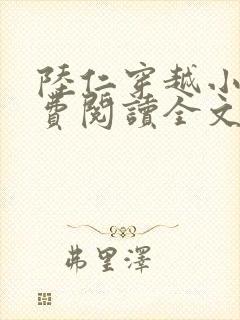 陸仁穿越小
費閱讀全文
弗里澤